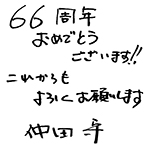 66周年
おめでとう
ございます!!
これからも
よろしくお願いします
仲田